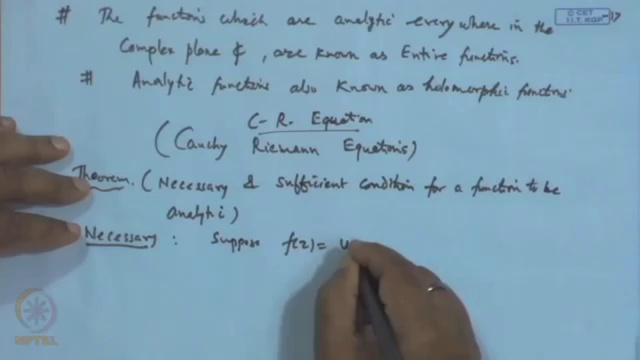 # The functions which are analytic everywhere in the
Complex plane ₵, are known as Entire functions.
# Analytic functions also known as holomorphic functions.
C-R. Equation
(Cauchy Riemann Equations)
Theorem. (Necessary & sufficient condition for a function to be
analytic)
Necessary : Suppose f(z) = u
© CET
I.I.T. KGP
NPTEL